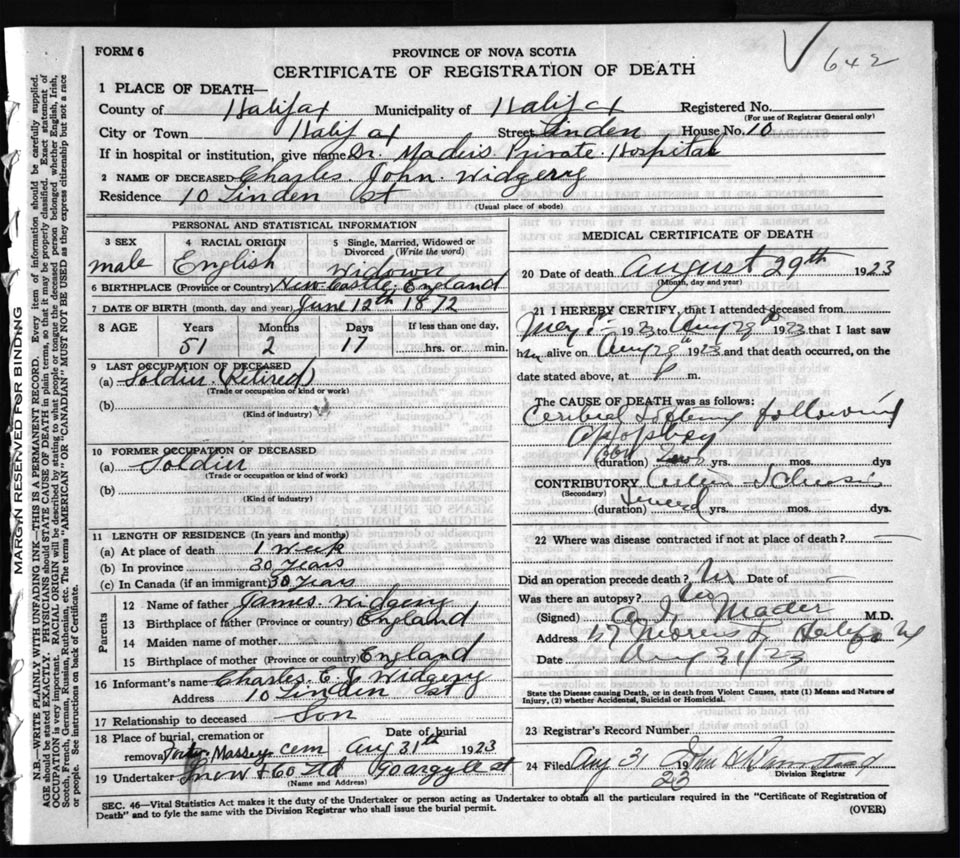 FORM 6
PROVINCE OF NOVA SCOTIA
CERTIFICATE OF REGISTRATION OF DEATH
642
1 PLACE OF DEATH—
County of Halifax Municipality of Halifax Registered No.
(For use of Registrar General only)
City or Town Halifax Street Linden House No. 10
If in hospital or institution, give name Dr. Maders Private Hospital
2 NAME OF DECEASED Charles John Widgery
Residence 10 Linden St
(Usual place of abode)
PERSONAL AND STATISTICAL INFORMATION
3 SEX
male
4 RACIAL ORIGIN
English
5 Single, Married, Widowed or Divorced (Write the word)
Widower
6 BIRTHPLACE (Province or Country) New Castle, England
7 DATE OF BIRTH (month, day and year) June 12th 1872
8 AGE Years Months Days If less than one day,
51 2 17 hrs. or min.
9 LAST OCCUPATION OF DECEASED
(a) Soldier (Retired)
(Trade or occupation or kind of work)
(b)
(Kind of industry)
10 FORMER OCCUPATION OF DECEASED
(a) Soldier
(Trade or occupation or kind of work)
(b)
(Kind of industry)
11 LENGTH OF RESIDENCE (In years and months)
(a) At place of death 1 Week
(b) In province 30 Years
(c) In Canada (if an immigrant) 30 Years
Parents
12 Name of father James Widgery
13 Birthplace of father (Province or country) England
14 Maiden name of mother
15 Birthplace of mother (Province or country) England
16 Informant's name Charles E. J. Widgery
Address 10 Linden St
17 Relationship to deceased Son
18 Place of burial, cremation or removal Massey cem Date of burial Aug 31th 1923
19 Undertaker Snow & Co Ltd 90 argyle st
(Name and Address)
MEDICAL CERTIFICATE OF DEATH
20 Date of death August 29th 1923
(Month, day and year)
21 I HEREBY CERTIFY, that I attended deceased from
May 1st 1923 to Aug 29th 1923 that I last saw
him alive on Aug 29th 1923 and that death occurred, on the
date stated above, at P m.
The CAUSE OF DEATH was as follows:
following
apoplexy
(duration) yrs. mos. dys
CONTRIBUTORY
(Secondary)
(duration) yrs. mos. dys.
22 Where was disease contracted if not at place of death?
Did an operation precede death? No Date of
Was there an autopsy? No
(Signed) Mader M.D.
Address 57 Morris St Halifax NS
Date Aug 31/23
State the Disease causing Death, or in death from Violent Causes, state (1) Means and Nature of Injury, (2) whether Accidental, Suicidal or Homicidal.
23 Registrar's Record Number
24 Filed Aug 31 1923 John
Division Registrar
SEC. 46—Vital Statistics Act makes it the duty of the Undertaker or person acting as Undertaker to obtain all the particulars required in the "Certificate of Registration of
Death" and to fyle the same with the Division Registrar who shall issue the burial permit.
(OVER)
MARGIN RESERVED FOR BINDING
N.B.—WRITE PLAINLY WITH UNFADING INK—THIS IS A PERMANENT RECORD. Every item of information should be carefully supplied.
AGE should be stated EXACTLY. PHYSICIANS should STATE CAUSE OF DEATH in plain terms, so that it may be properly classified. Exact statement of
OCCUPATION is very important. RACIAL ORIGIN will be described by stating to what people or tongue the deceased person belonged, whether English, Irish,
Scotch, French, German, Russian, Ruthenian, etc. The terms "AMERICAN" OR "CANADIAN" MUST NOT BE USED as they express citizenship but not a race
or people. See instructions on back of Certificate.